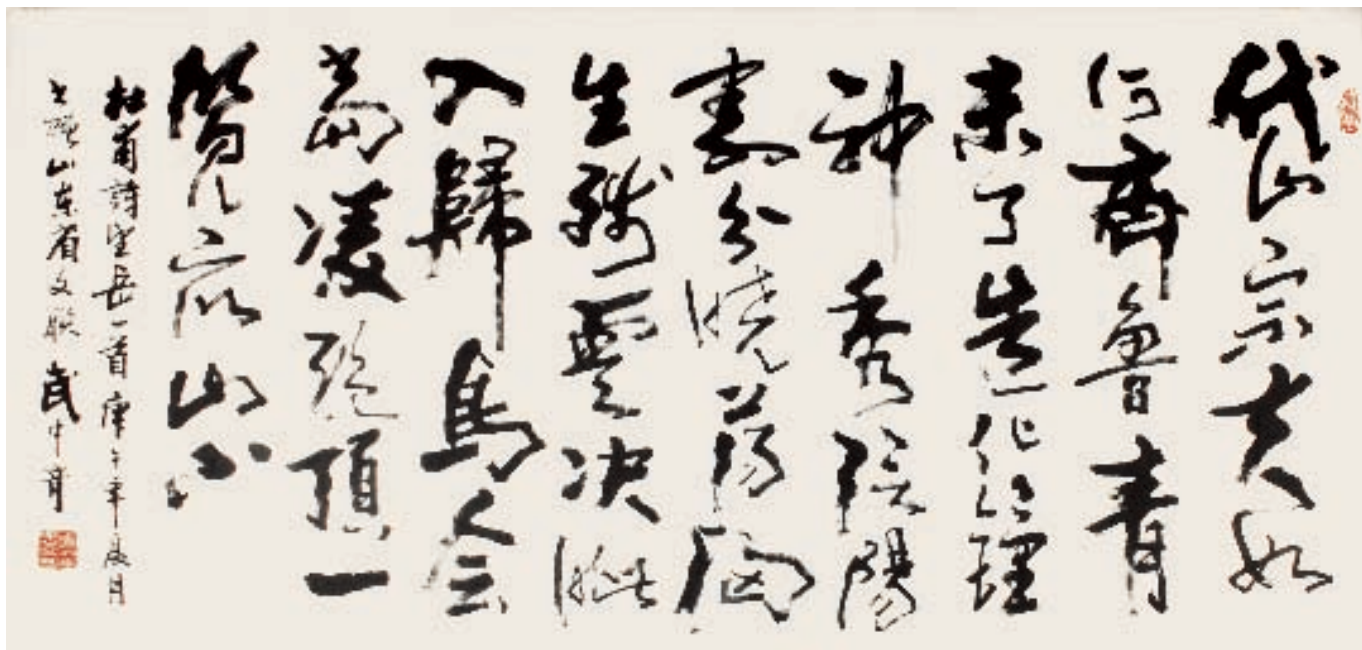 岱宗夫如
何齊魯青
未了造化鍾
神秀陰陽
割分曉蕩胸
生層雲決眥
入歸鳥會
當凌絕頂一
覽眾山小
杜甫詩望岳一首庚午年夏月
書於山東省文联武中奇